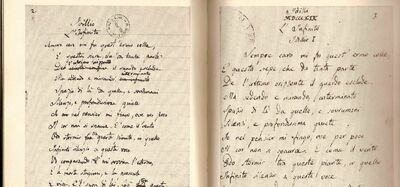 2.
Idillio
L'Infinito
Sempre caro mi fu quest'ermo colle,
E questa siepe, che da tanta parte
Dell'ultimo orizzonte il guardo esclude.
Ma sedendo e mirando, interminato
Spazio di là da quella, e sovrumani
Silenzi, e profondissima quiete
Io nel pensier mi fingo, ove per poco
Il cor non si spaura. E come il vento
Odo stormir tra queste piante, io quello
Infinito silenzio a questa voce
Vo comparando: e mi sovvien l'eterno,
E le morte stagioni, e la presente
E viva, e 'l suon di lei.
3
MDCCCXIX
L'Infinito
Idillio I
Sempre caro mi fu quest'ermo colle,
E questa siepe, che da tanta parte
De l'ultimo orizzonte il guardo esclude.
Ma sedendo e mirando, interminato
Spazio di là da quella, e sovrumani
Silenzi, e profondissima quiete
Io nel pensier mi fingo, ove per poco
Il cor non si spaura. E come il vento
Odo stormir tra queste piante, io quello
Infinito silenzio a questa voce